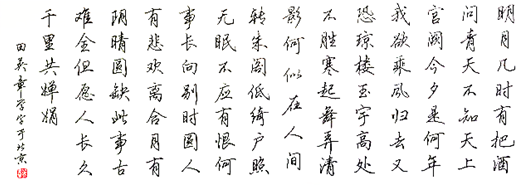 明月几时有把酒
问青天不知天上
宫阙今夕是何年
我欲乘风归去又
恐琼楼玉宇高处
不胜寒起舞弄清
影何似在人间
转朱阁低绮户照
无眠不应有恨何
事长向别时圆人
有悲欢离合月有
阴晴圆缺此事古
难全但愿人长久
千里共婵娟
田英章学字于北京